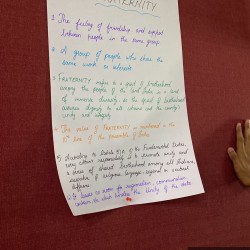 FRATERNITY
1. The feeling of friendship and support
between people in the same group
2. A group of people who share the
same work or interests
3. FRATERNITY refers to a spirit of brotherhood
among the people of the land. India is a land
of immense diversity so the spirit of brotherhood
assures dignity to all citizens and the country's
unity and integrity
4. The value of FRATERNITY is mentioned in the
of the preamble of India
5) According to Article 51A of the Fundamental Duties,
every citizens responsibility is to promote unity and
a sense of shared brotherhood among all Indians,
irrespective of religious, language, regional or
differences
6. It leads to
the Unity of the state